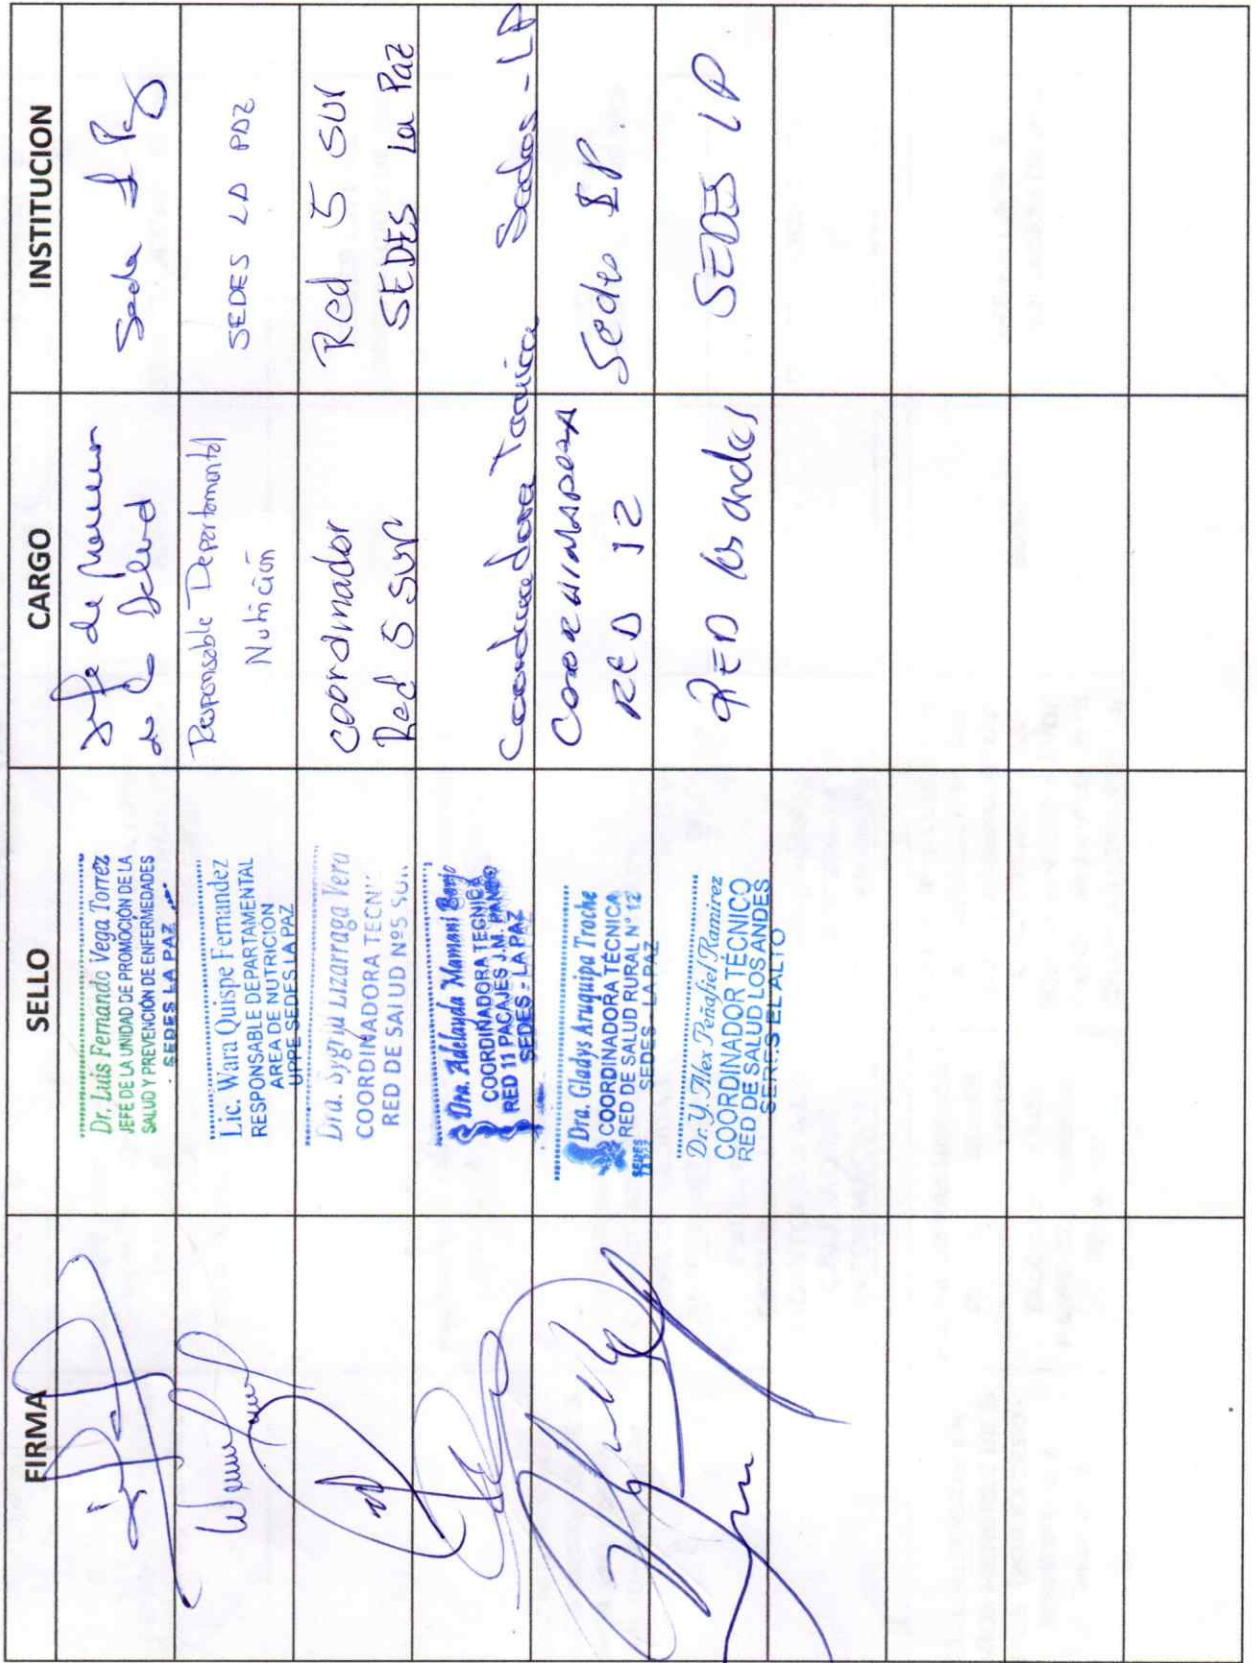 FIRMA SELLO CARGO INSTITUCION
Dr. Luis Fernando Vega Torrez
JEFE DE LA UNIDAD DE PROMOCIÓN DE LA
SALUD Y PREVENCIÓN DE ENFERMEDADES
SEDES LA PAZ
Jefe de
de la Salud
Lic. Wara Quispe Fernandez
RESPONSABLE DEPARTAMENTAL
AREA DE NUTRICION
UPPE SEDES LA PAZ
Responsable Departamental
Nutrición
SEDES LA PAZ
Dra. Sygrid Lizarraga Vera
COORDINADORA TECN
RED DE SALUD Nº5 SUR
Coordinador
Red 5 Sur
Red 5 Sur
SEDES La Paz
Dra. Adelayda Mamani
COORDINADORA TECNICA
RED 11 PACAJES J.M. PANDO
SEDES - LA PAZ
Coordinadora Tecnica
Sedes - LP
Dra. Gladys Aruquipa Troche
COORDINADORA TÉCNICA
RED DE SALUD RURAL Nº 12
SEDES - LA PAZ
COORDINADORA
RED 12
Sedes LP.
Dr. Y. Alex Peñafiel Ramirez
COORDINADOR TÉCNICO
RED DE SALUD LOS ANDES
SERES EL ALTO
RED los andes
SEDES LP